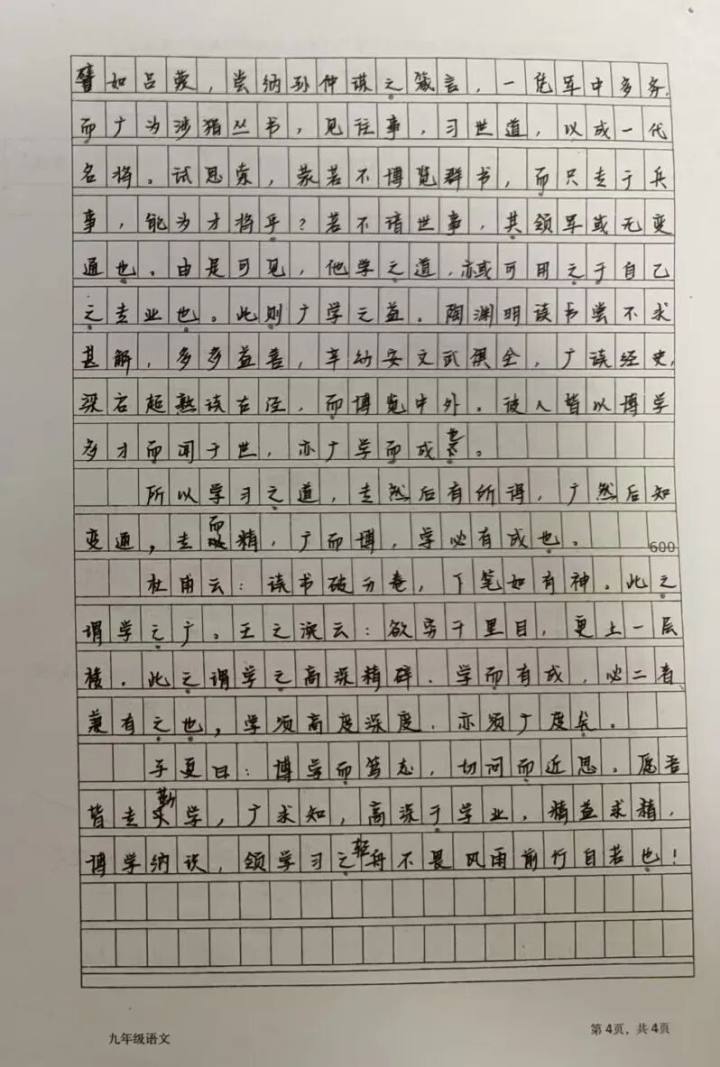 譬如吕蒙，尝纳孙仲谋之箴言，一克军中多务，
而广为涉猎丛书，见往事，习世道，以成一代
名将。试思索，蒙若不博览群书，而只专于兵
事，能为才将乎？若不谙世事，其领军或无变
通也。由是可见，他学之道，亦或可用之于自己
之专业也。此则广学之益。陶渊明读书尝不求
甚解，多多益善，辛幼安文武俱全，广读经史，
梁启超熟读古经，而博览中外。彼人皆以博学
多才而闻于世，亦广学而成者。
所以学习之道，专然后有所得，广然后知
变通，专而精，广而博，学必有成也。
600
杜甫云：读书破万卷，下笔如有神。此之
谓学之广。王之涣云：欲穷千里目，更上一层
楼。此之谓学之高深精辟。学而有成，必二者
兼有之也，学须高度深度，亦须广度矣。
子夏曰：博学而笃志，切问而近思。愿吾
皆专勤学，广求知，高深于学业，精益求精，
博学纳识，领学习之轻舟不畏风雨前行自若也！
九年级语文
第4页，共4页